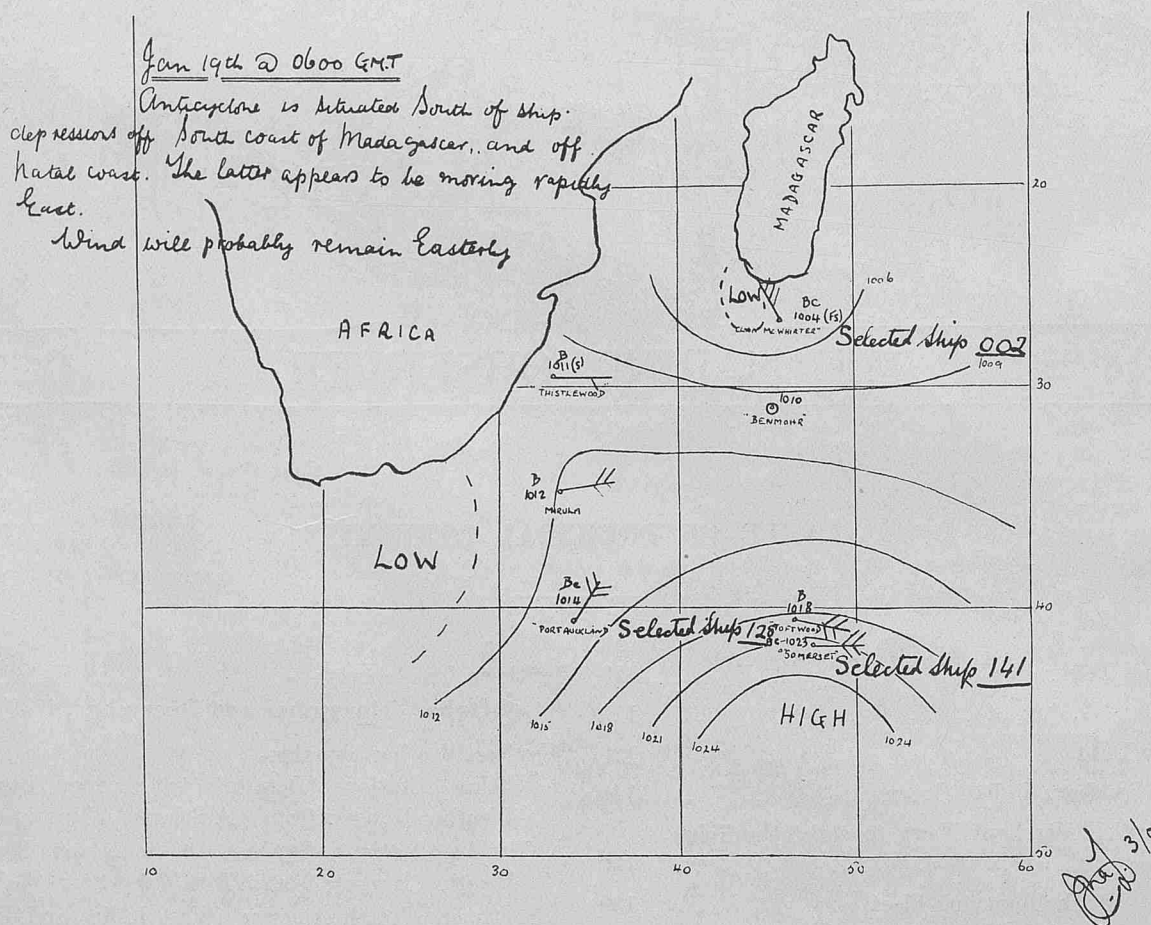 Jan 19th @ 0600 GMT
Anticyclone is situated South of ship.
depressions off South coast of Madagascar, and off
Natal coast. The latter appears to be moving rapidly
East.
Wind will probably remain Easterly
MADAGASCAR
20
AFRICA
LOW
Bc
1004 (FS)
"CLAN McWHIRTER"
1006
Selected Ship 002
1009
B
1011(S)
THISTLEWOOD
30
1010
"BENMOHR"
B
1012
MIRULA
LOW
Bc
1014
"PORT AUCKLAND"
Selected Ship 128
B
1018
40
Bc-1023
"SOMERSET"
Selected Ship 141
HIGH
1012
1015
1018
1021
1024
1024
10
20
30
40
50
60
50